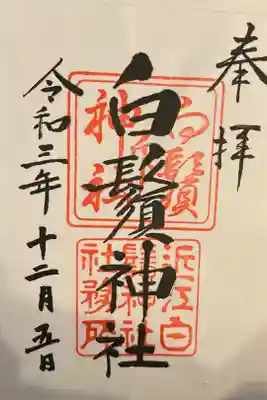 奉拝
白鬚神社
令和三年十二月五日
白鬚神社
近江国白鬚神社社務所